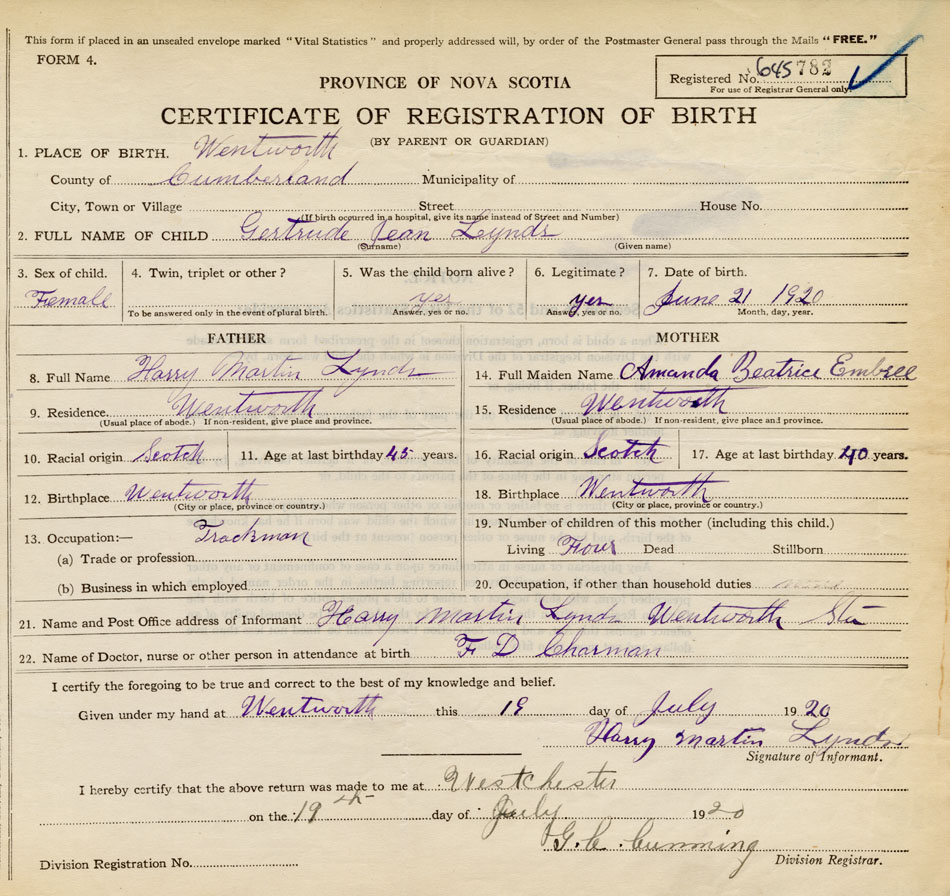 This form if placed in an unsealed envelope marked "Vital Statistics" and properly addressed will, by order of the Postmaster General pass through the Mails "FREE."
FORM 4.
Registered No. 645782
For use of Registrar General only.
PROVINCE OF NOVA SCOTIA
CERTIFICATE OF REGISTRATION OF BIRTH
(BY PARENT OR GUARDIAN)
1. PLACE OF BIRTH. Wentworth
County of Cumberland Municipality of
City, Town or Village Street House No.
(If birth occurred in a hospital, give its name instead of Street and Number)
2. FULL NAME OF CHILD Gertrude Jean Lynds
(Surname) (Given name)
3. Sex of child. 4. Twin, triplet or other? 5. Was the child born alive? 6. Legitimate? 7. Date of birth.
Female yes yes June 21 1920
To be answered only in the event of plural birth. Answer, yes or no. Answer, yes or no. Month, day, year.
FATHER MOTHER
8. Full Name Harry Martin Lynds 14. Full Maiden Name Amanda Beatrice Embree
9. Residence. Wentworth 15. Residence Wentworth
(Usual place of abode.) If non-resident, give place and province. (Usual place of abode.) If non-resident, give place and province.
10. Racial origin Scotch 11. Age at last birthday 45 years. 16. Racial origin Scotch 17. Age at last birthday 40 years.
12. Birthplace Wentworth 18. Birthplace Wentworth
(City or place, province or country.) (City or place, province or country.)
13. Occupation:— Trackman 19. Number of children of this mother (including this child.)
(a) Trade or profession Living Four Dead Stillborn
(b) Business in which employed 20. Occupation, if other than household duties none
21. Name and Post Office address of Informant Harry Martin Lynds Wentworth Sta
22. Name of Doctor, nurse or other person in attendance at birth F D Charman
I certify the foregoing to be true and correct to the best of my knowledge and belief.
Given under my hand at Wentworth this 19 day of July 1920
Harry Martin Lynds
Signature of Informant.
I hereby certify that the above return was made to me at Westchester
on the 19th day of July 1920
G. C. Cumming
Division Registrar.
Division Registration No.